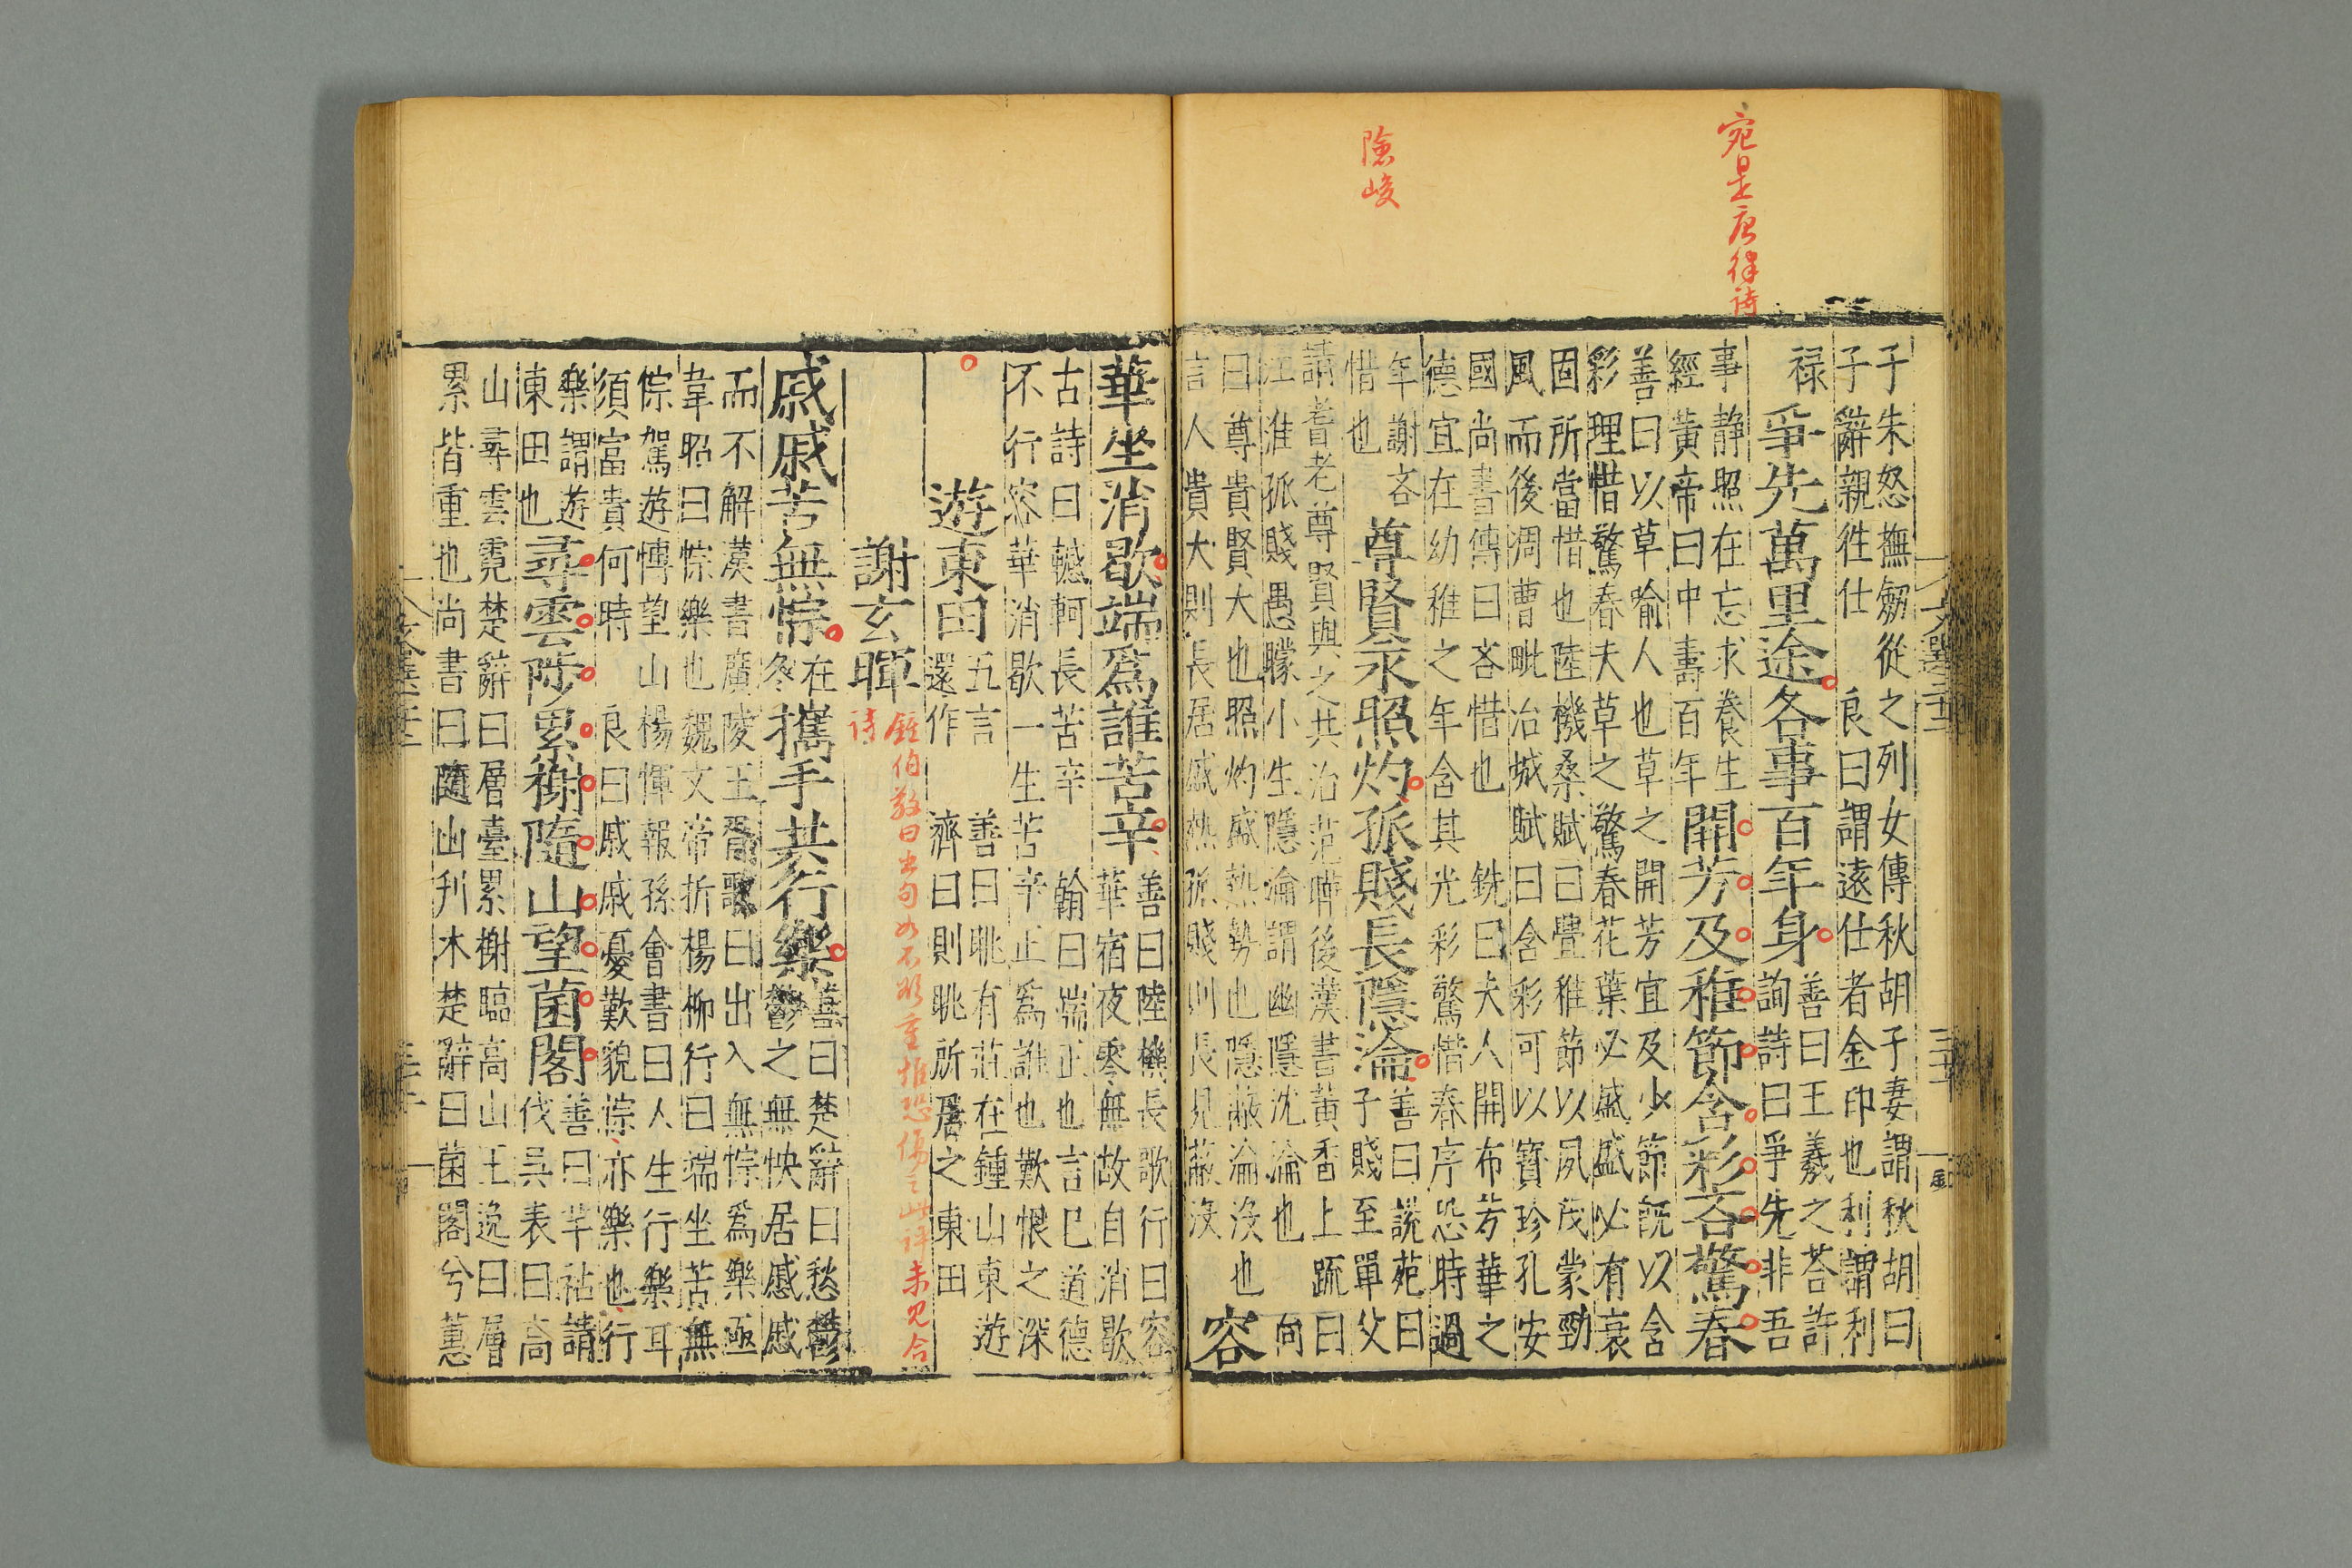 宛是唐律詩
險峻
子朱怒撫劒從之列女傳秋胡子妻謂秋胡曰
子辭親徃仕 良曰謂遠仕者金印也利謂利
禄
爭先萬里途各事百年身
善曰王羲之荅許
詢詩曰爭先非吾
事静照在忘求養生
經黃帝曰中壽百年
開芳及稚節含彩吝驚春
善曰以草喻人也草之開芳宜及少節旣以含
彩理惜驚春夫草之驚春花葉必盛盛必有衰
固所當惜也陸機桑賦曰亹稚節以夙茂蒙勁
風而後凋曹毗冶城賦曰含彩可以寶珍孔安
國尚書傳曰吝惜也 銑曰夫人開布芳華之
德宜在幼稚之年含其光彩驚惜春序恐時過
年謝吝
惜也
尊賢永照灼孤賤長隱淪
善曰說苑曰
子賤至單父
請耆老尊賢與之共治范曄後漢書黃香上疏曰
江淮孤賤愚矇小生隱淪謂幽隱沈淪也 向
曰尊貴賢大也照灼盛熱勢也隱蔽淪没也
言人貴大則長居盛熱孤賤則長見蔽没
容
華坐消歇端爲誰苦辛
善曰陸機長歌行曰容
華宿夜零無故自消歇
古詩曰轗軻長苦辛 翰曰端正也言巳道德
不行容華消歇一生苦辛正爲誰也歎恨之深
遊東田
五言
還作
善曰眺有莊在鍾山東遊
濟曰則眺所居之東田
謝玄暉
鍾伯敬曰出句如不欲重推恐傷之此詳未見合
詩
戚戚苦無悰
在
冬
攜手共行樂
善曰楚辭曰愁鬱
鬱之無快居戚戚
而不解漢書廣陵王胥歌曰出入無悰爲樂亟
韋昭曰悰樂也魏文帝折楊柳行曰端坐苦無
悰駕遊博望山 楊惲報孫會書曰人生行樂耳
須富貴何時 良曰戚戚憂歎貌悰亦樂也行
樂謂遊
東田也
尋雲陟累榭隨山望菌閣
善曰芊祜請
伐吳表曰高
山尋雲霓楚辭曰層臺累榭臨高山王逸曰層
累皆重也尚書曰隨山刋木楚辭曰菌閣兮蕙